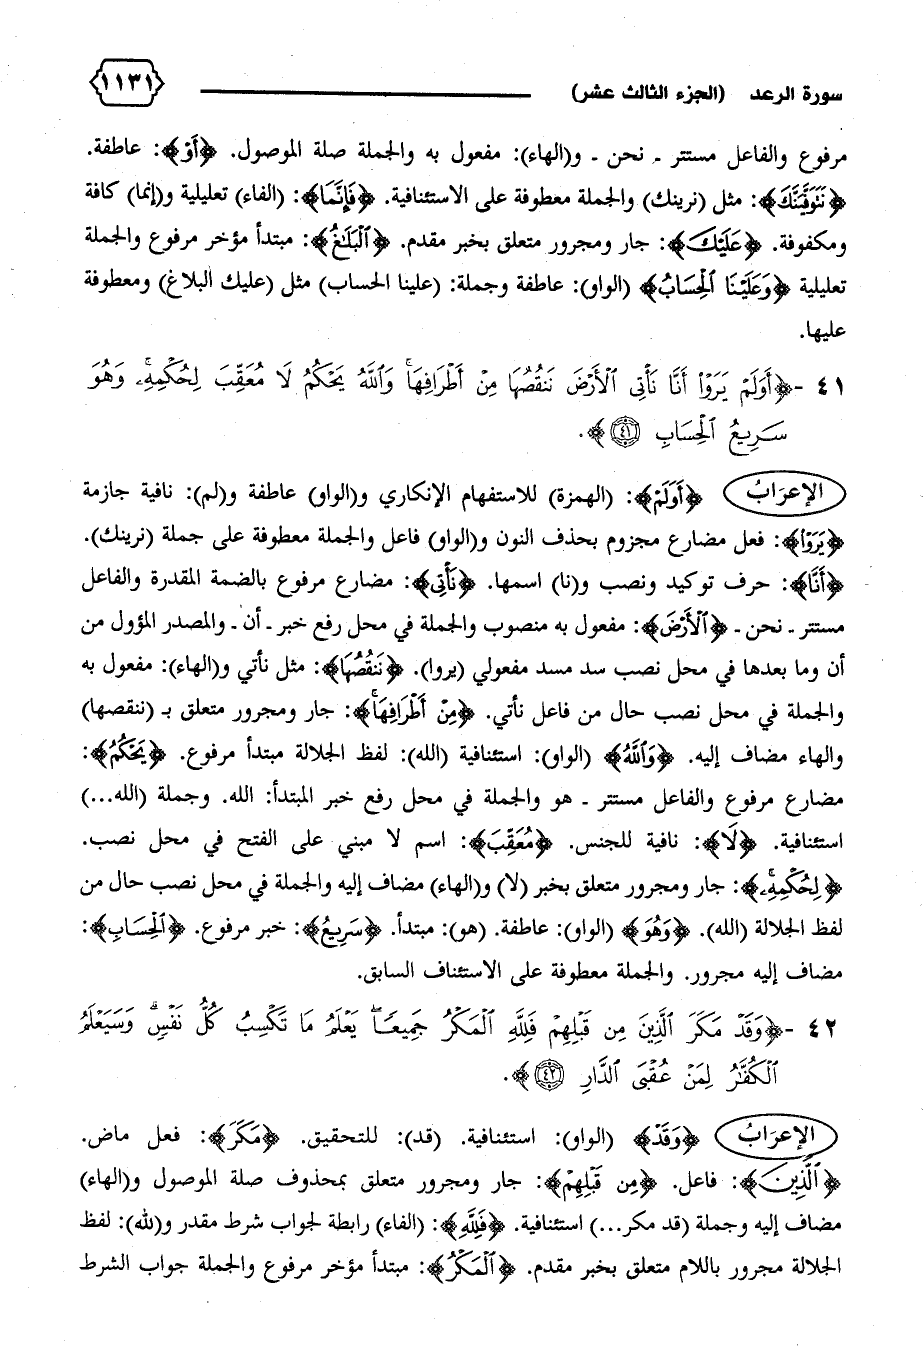 سورة الرعد (الجزء الثالث عشر) ١١٣١
مرفوع والفاعل مستتر ـ نحن ـ و(الهاء): مفعول به والجملة صلة الموصول. ﴿أَوْ﴾: عاطفة.
﴿نَتَوَفَّيَنَّكَ﴾: مثل (نرينك) والجملة معطوفة على الاستئنافية. ﴿فَإِنَّمَا﴾: (الفاء) تعليلية و(إنما) كافة
ومكفوفة. ﴿عَلَيْكَ﴾: جار ومجرور متعلق بخبر مقدم. ﴿ٱلْبَلَٰغُ﴾: مبتدأ مؤخر مرفوع والجملة
تعليلية ﴿وَعَلَيْنَا ٱلْحِسَابُ﴾ (الواو): عاطفة وجملة: (علينا الحساب) مثل (عليك البلاغ) ومعطوفة
عليها.
٤١ -﴿أَوَلَمْ يَرَوْا۟ أَنَّا نَأْتِى ٱلْأَرْضَ نَنقُصُهَا مِنْ أَطْرَافِهَا ۚ وَٱللَّهُ يَحْكُمُ لَا مُعَقِّبَ لِحُكْمِهِۦ ۚ وَهُوَ
سَرِيعُ ٱلْحِسَابِ ٤١﴾.
الإعرَابُ ﴿أَوَلَمْ﴾: (الهمزة) للاستفهام الإنكاري و(الواو) عاطفة و(لم): نافية جازمة
﴿يَرَوْا۟﴾: فعل مضارع مجزوم بحذف النون و(الواو) فاعل والجملة معطوفة على جملة (نرينك).
﴿أَنَّا﴾: حرف توكيد ونصب و(نا) اسمها. ﴿نَأْتِى﴾: مضارع مرفوع بالضمة المقدرة والفاعل
مستتر ـ نحن ـ ﴿ٱلْأَرْضَ﴾: مفعول به منصوب والجملة في محل رفع خبر ـ أن ـ والمصدر المؤول من
أن وما بعدها في محل نصب سد مسد مفعولي (يروا). ﴿نَنقُصُهَا﴾: مثل نأتي و(الهاء): مفعول به
والجملة في محل نصب حال من فاعل نأتي. ﴿مِنْ أَطْرَافِهَا ۚ﴾: جار ومجرور متعلق بـ (ننقصها)
والهاء مضاف إليه. ﴿وَٱللَّهُ﴾ (الواو): استئنافية (الله): لفظ الجلالة مبتدأ مرفوع. ﴿يَحْكُمُ﴾:
مضارع مرفوع والفاعل مستتر ـ هو والجملة في محل رفع خبر المبتدأ: الله. وجملة (الله...)
استئنافية. ﴿لَا﴾: نافية للجنس. ﴿مُعَقِّبَ﴾: اسم لا مبني على الفتح في محل نصب.
﴿لِحُكْمِهِۦ ۚ﴾: جار ومجرور متعلق بخبر (لا) و(الهاء) مضاف إليه والجملة في محل نصب حال من
لفظ الجلالة (الله). ﴿وَهُوَ﴾ (الواو): عاطفة. (هو): مبتدأ. ﴿سَرِيعُ﴾: خبر مرفوع. ﴿ٱلْحِسَابِ﴾:
مضاف إليه مجرور. والجملة معطوفة على الاستئناف السابق.
٤٢ -﴿وَقَدْ مَكَرَ ٱلَّذِينَ مِن قَبْلِهِمْ فَلِلَّهِ ٱلْمَكْرُ جَمِيعًا ۖ يَعْلَمُ مَا تَكْسِبُ كُلُّ نَفْسٍ ۗ وَسَيَعْلَمُ
ٱلْكُفَّٰرُ لِمَنْ عُقْبَى ٱلدَّارِ ٤٢﴾.
الإعرَابُ ﴿وَقَدْ﴾ (الواو): استئنافية. (قد): للتحقيق. ﴿مَكَرَ﴾: فعل ماض.
﴿ٱلَّذِينَ﴾: فاعل. ﴿مِن قَبْلِهِمْ﴾: جار ومجرور متعلق بمحذوف صلة الموصول و(الهاء)
مضاف إليه وجملة (قد مكر...) استئنافية. ﴿فَلِلَّهِ﴾: (الفاء) رابطة لجواب شرط مقدر و(لله): لفظ
الجلالة مجرور باللام متعلق بخبر مقدم. ﴿ٱلْمَكْرُ﴾: مبتدأ مؤخر مرفوع والجملة جواب الشرط